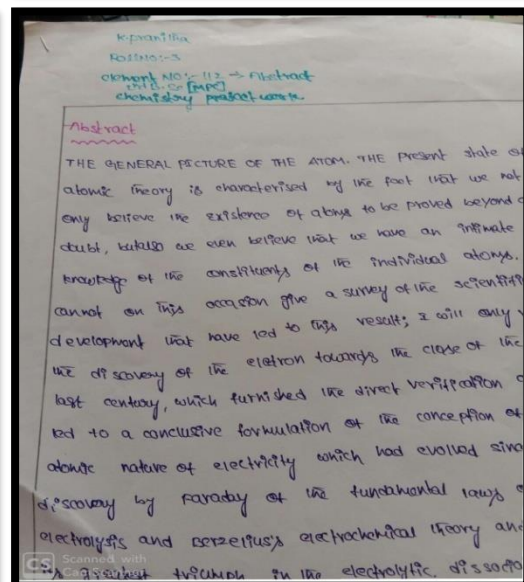 K.pranitha
Roll NO:-3
element NO:- 112 → Abstract
[MPC]
chemistry project work
Abstract
THE GENERAL PICTURE OF THE ATOM. THE Present state of
atomic Theory is characterised by the fact that we not
only believe the existence of atoms to be proved beyond a
doubt, but also we even believe that we have an intimate
knowledge of the constituents of the individual atoms.
cannot on this occasion give a survey of the scientifi
development that have led to this result; I will only
the discovery of the eletron towards the close of the
last century, which furnished the direct verification
led to a conclusive formulation of the conception of
atomic nature of electricity which had evolved sinc
discovery by Faraday of the fundamental laws
electrolysis and Berzelius's electrochemical theory and
its greatest triumph in the electrolytic dissocia
CS Scanned with
CamScanner